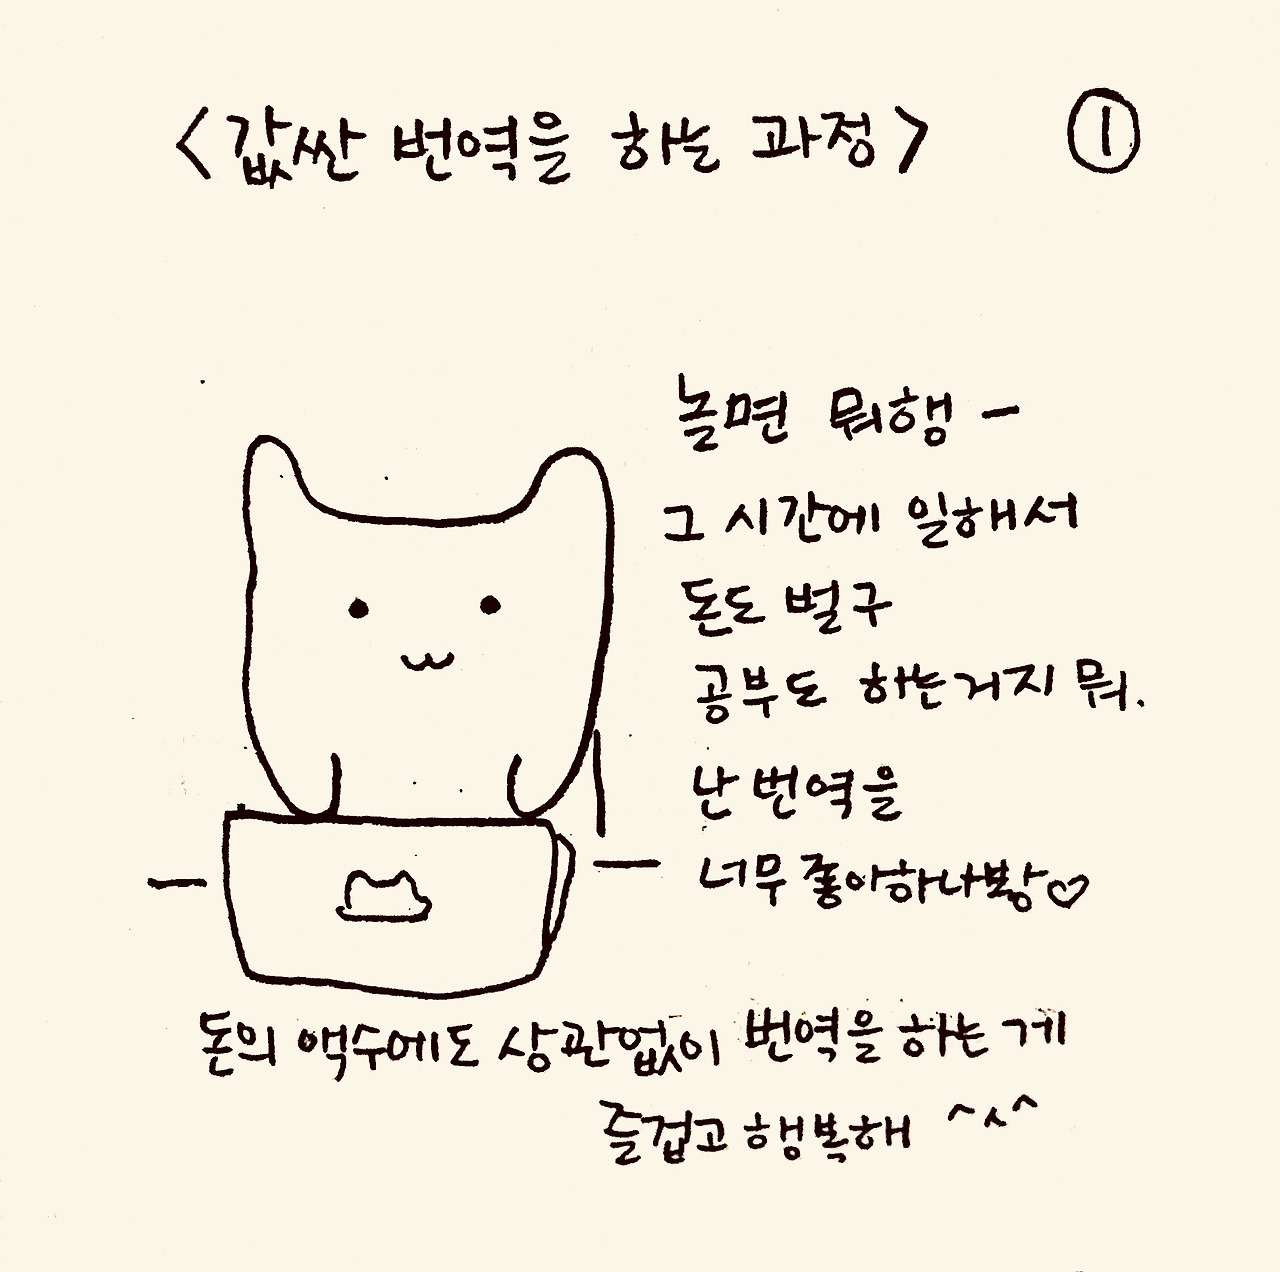 <값싼 번역을 하는 과정> ①
놀면 뭐행 -
그 시간에 일해서
돈도 벌구
공부도 하는거지 뭐.
난 번역을
너무 좋아하나봥♡
돈의 액수에도 상관없이 번역을 하는 게
즐겁고 행복해 ^ㅅ^